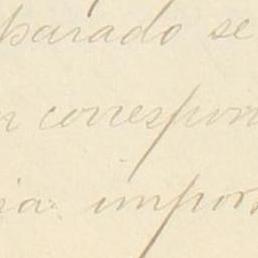 parado se
n correspon
ia impor